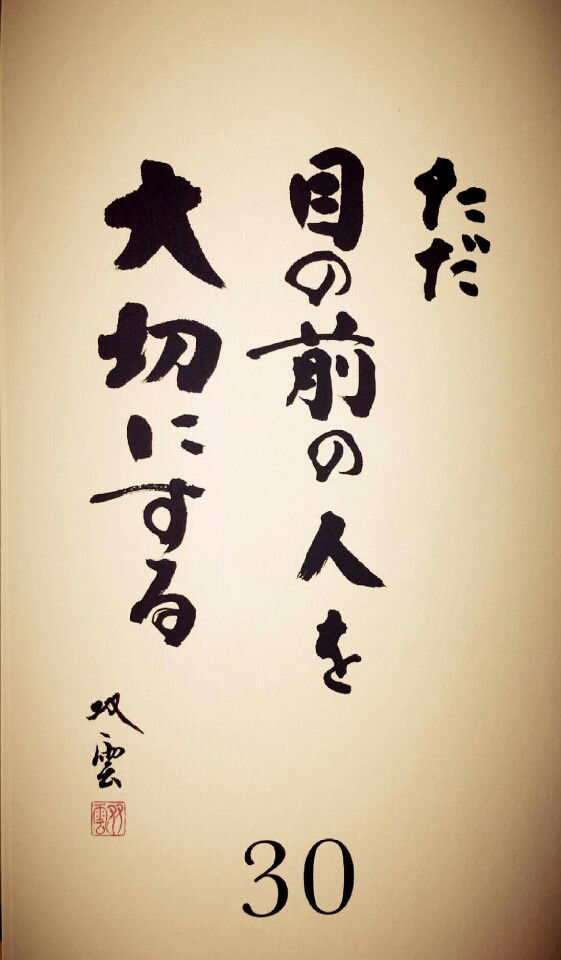 ただ
目の前の人を
大切にする
双雲
双雲
30